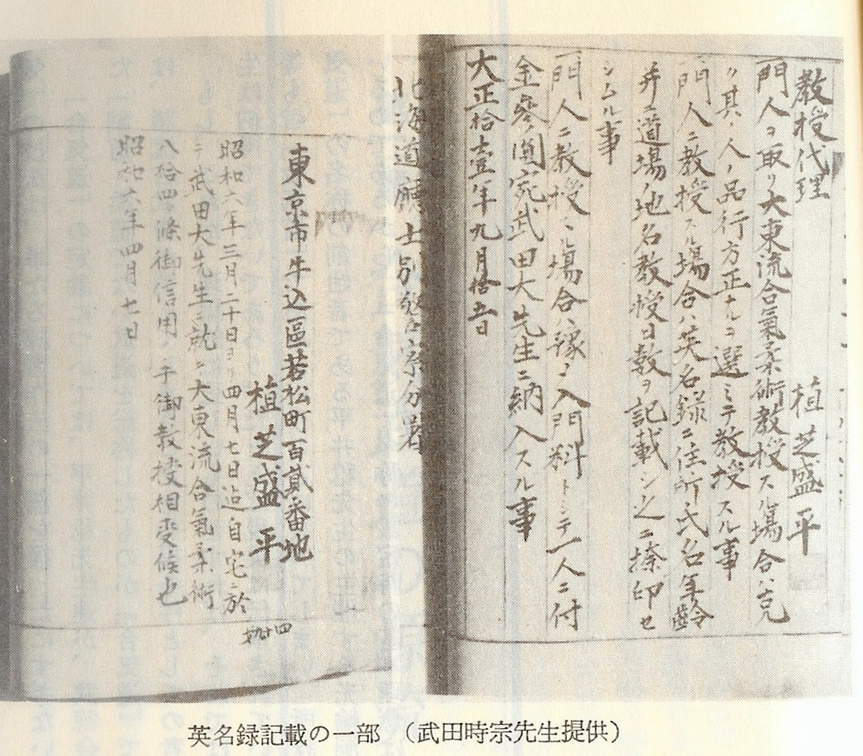 教授代理
植芝盛平
門人ヲ取リ大東流合氣柔術教授スル場合ハ克
ク其ノ人ノ品行方正ナルヲ選ミテ教授スル事
門人ニ教授スル場合ハ英名録ニ住所氏名年齢
并ニ道場ノ地名教授日数ヲ記載シ之ニ捺印セ
シムル事
門人ニ教授スル場合ハ入門料トシテ一人ニ付
金参圓宛武田大先生ニ納入スル事
大正拾壹年九月拾五日
北海道廳士別警察分署
東京市牛込區若松町百貳番地
植芝盛平
昭和六年三月二十日ヨリ四月七日迠自宅ニ於
テ武田大先生ニ就キ大東流合氣柔術
八拾四ヶ條御信用ノ手御教授相受候也
昭和六年四月七日
英名録記載の一部 (武田時宗先生提供)